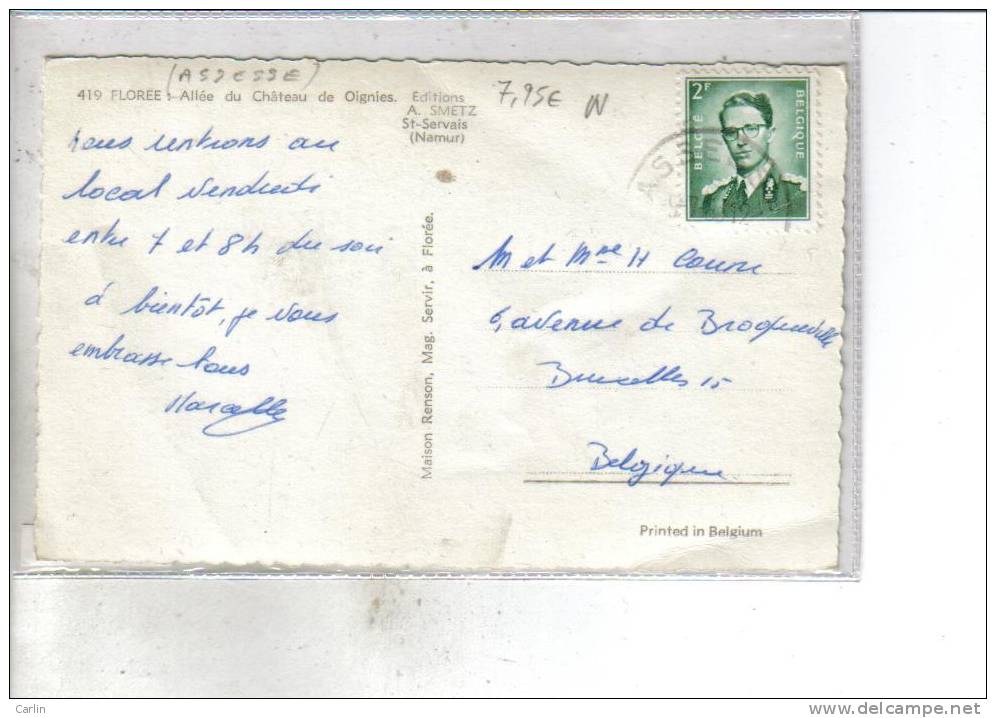 (ASSESSE)
419 FLOREE : Allée du Château de Oignies.
Editions
A. SMETZ
St-Servais
(Namur)
7,95€ N
2F
BELGIË BELGIQUE
nous rentrons au
local Vendredi
entre 7 et 8h du soir
à bientôt, je vous
embrasse tous
Marcelle
Maison Renson, Mag. Servir, à Florée.
M et Mme H
6, avenue de Broqueville
Bruxelles 15
Belgique
Printed in Belgium
Carlin
www.delcampe.net